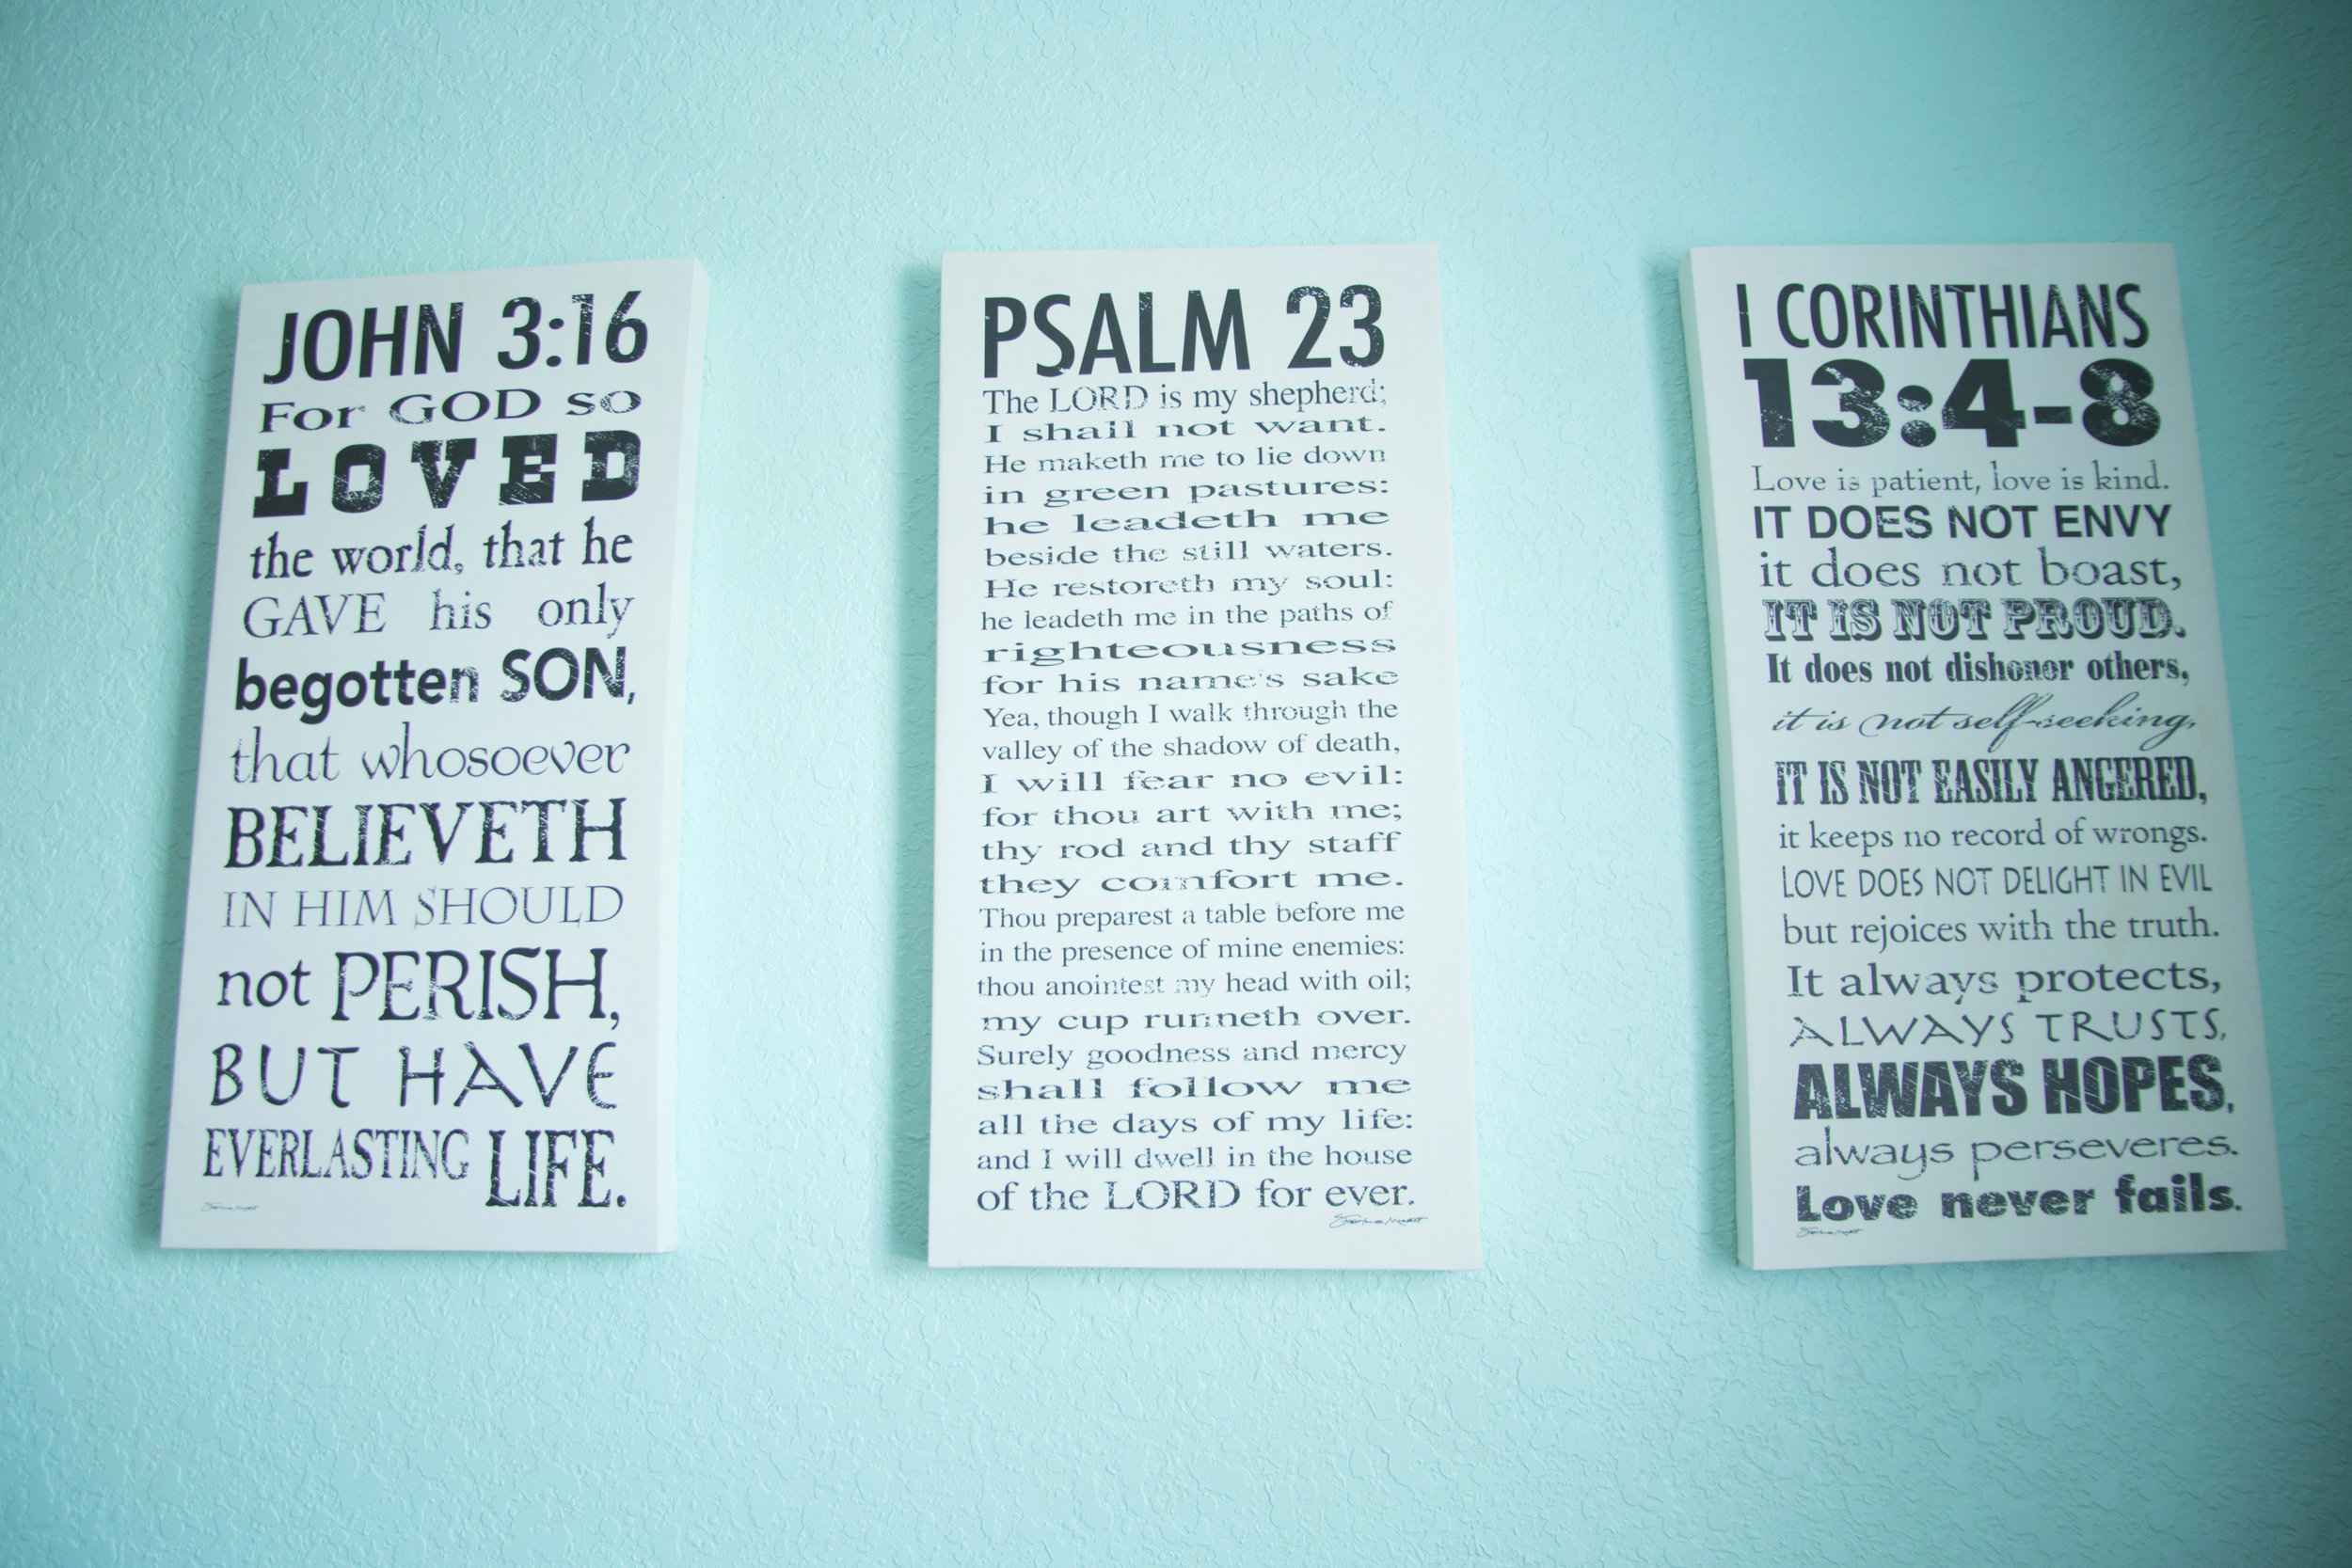 JOHN 3:16
For GOD so
LOVED
the world, that he
GAVE his only
begotten SON,
that whosoever
BELIEVETH
IN HIM SHOULD
not PERISH,
BUT HAVE
EVERLASTING LIFE.
PSALM 23
The LORD is my shepherd;
I shall not want.
He maketh me to lie down
in green pastures:
he leadeth me
beside the still waters.
He restoreth my soul:
he leadeth me in the paths of
righteousness
for his name's sake
Yea, though I walk through the
valley of the shadow of death,
I will fear no evil:
for thou art with me;
thy rod and thy staff
they comfort me.
Thou preparest a table before me
in the presence of mine enemies:
thou anointest my head with oil;
my cup runneth over.
Surely goodness and mercy
shall follow me
all the days of my life:
and I will dwell in the house
of the LORD for ever.
I CORINTHIANS
13:4-8
Love is patient, love is kind.
IT DOES NOT ENVY
it does not boast,
IT IS NOT PROUD.
It does not dishonor others,
it is not self-seeking,
IT IS NOT EASILY ANGERED,
it keeps no record of wrongs.
LOVE DOES NOT DELIGHT IN EVIL
but rejoices with the truth.
It always protects,
ALWAYS TRUSTS,
ALWAYS HOPES,
always perseveres.
Love never fails.